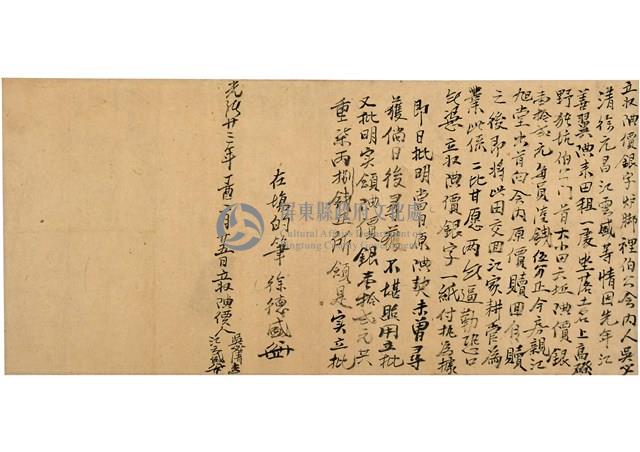 立收價銀字炉脚裡伯公會內人吳必
清徐元昌江雲感等情因先年江
善翼来田租一處坐落土名上高樹
野張坑伯公門首大小田六坵價銀
壹拾弍元每員錢伍分正今房親江
旭堂出首向會內原價贖回自贖
之後即將此田交回江家耕管為
業此係二比甘愿两無逼勒恐口
無憑立收價銀字一紙付执為據
即日批明當日原契未曾尋
獲倘日後尋獲不堪照用立批
又批明实領價銀壹拾弍元共
重柒两捌錢正所領是实立批
在塲的筆徐德感
光緒廿三年丁酉月廿五日立收價人吳必清
江雲感
屏東縣政府文化處
Cultural Affairs Department of
Pingtung County Government